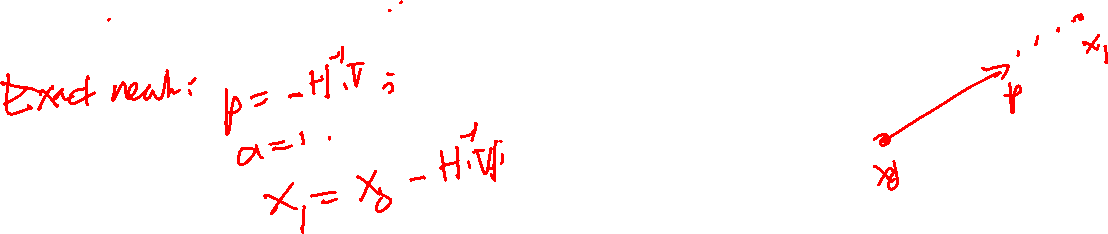 Exact newt:
p = -H⁻¹.∇ ;
a = 1 .
x₁ = x₀ - H⁻¹.∇f;
x₀
p
x₁